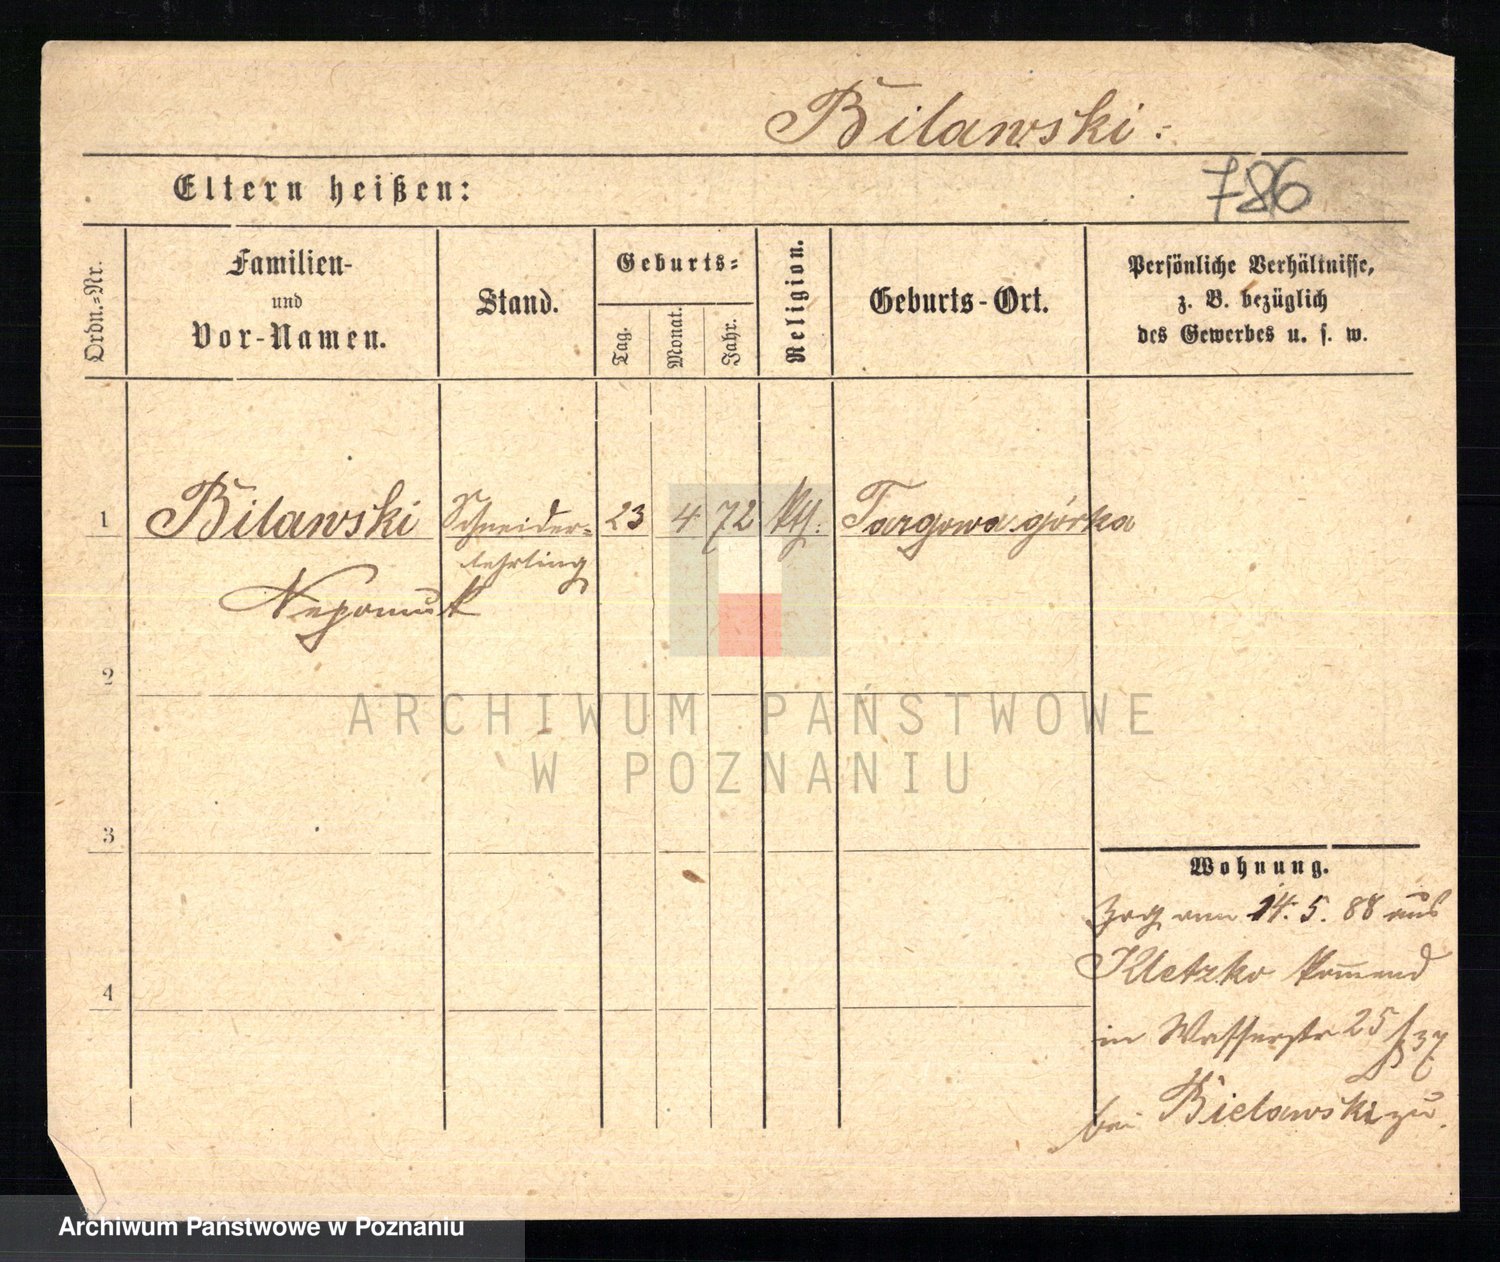 Bilawski.
786
Eltern heißen:
Ordn.-Nr.
Familien-
und
Vor-Namen.
Stand.
Geburts-
Tag.
Monat.
Jahr.
Religion.
Geburts-Ort.
Persönliche Verhältnisse,
z. B. bezüglich
des Gewerbes u. s. w.
1 Bilawski Schneider- 23 4 72 kth: Targowa górka
lehrling
Nepomuk
2
3
4
Wohnung.
Zog am 14. 5. 88 aus
Kletzko kommend
in Wasserstr 25
bei Bielawski zu.
ARCHIWUM PAŃSTWOWE
W POZNANIU
Archiwum Państwowe w Poznaniu